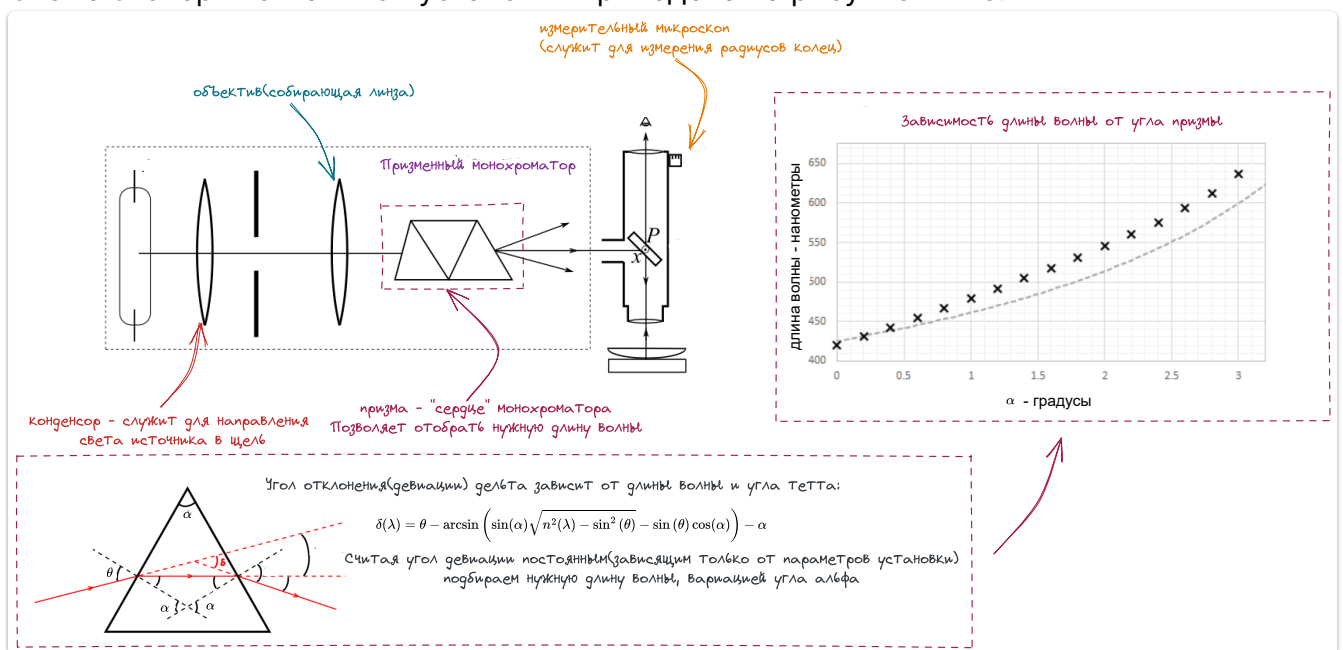 измерительный микроскоп
(служит для измерения радиусов колец)
объектив(собирающая линза)
Призменный монохроматор
P
x
конденсор - служит для направления
света источника в щель
призма - "сердце" монохроматора
Позволяет отобрать нужную длину волны
Зависимость длины волны от угла призмы
длина волны - нанометры
650
600
550
500
450
400
0
0.5
1
1.5
2
2.5
3
α - градусы
Угол отклонения(девиации) дельта зависит от длины волны и угла тетта:
δ(λ) = θ − arcsin (sin(α)√(n²(λ) − sin²(θ)) − sin(θ) cos(α)) − α
Считая угол девиации постоянным(зависящим только от параметров установки)
подбираем нужную длину волны, вариацией угла альфа
α
θ
δ
α
α